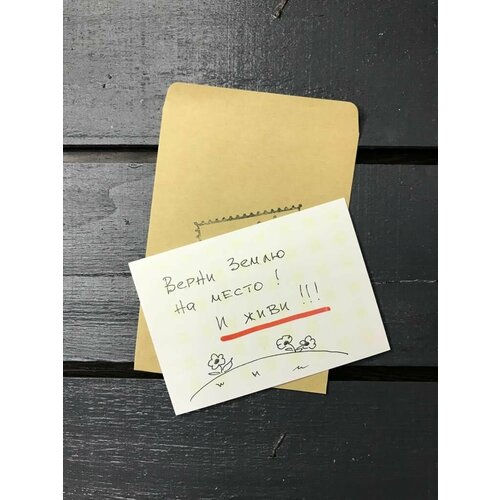 Верни Землю
на место!
и живи!!!